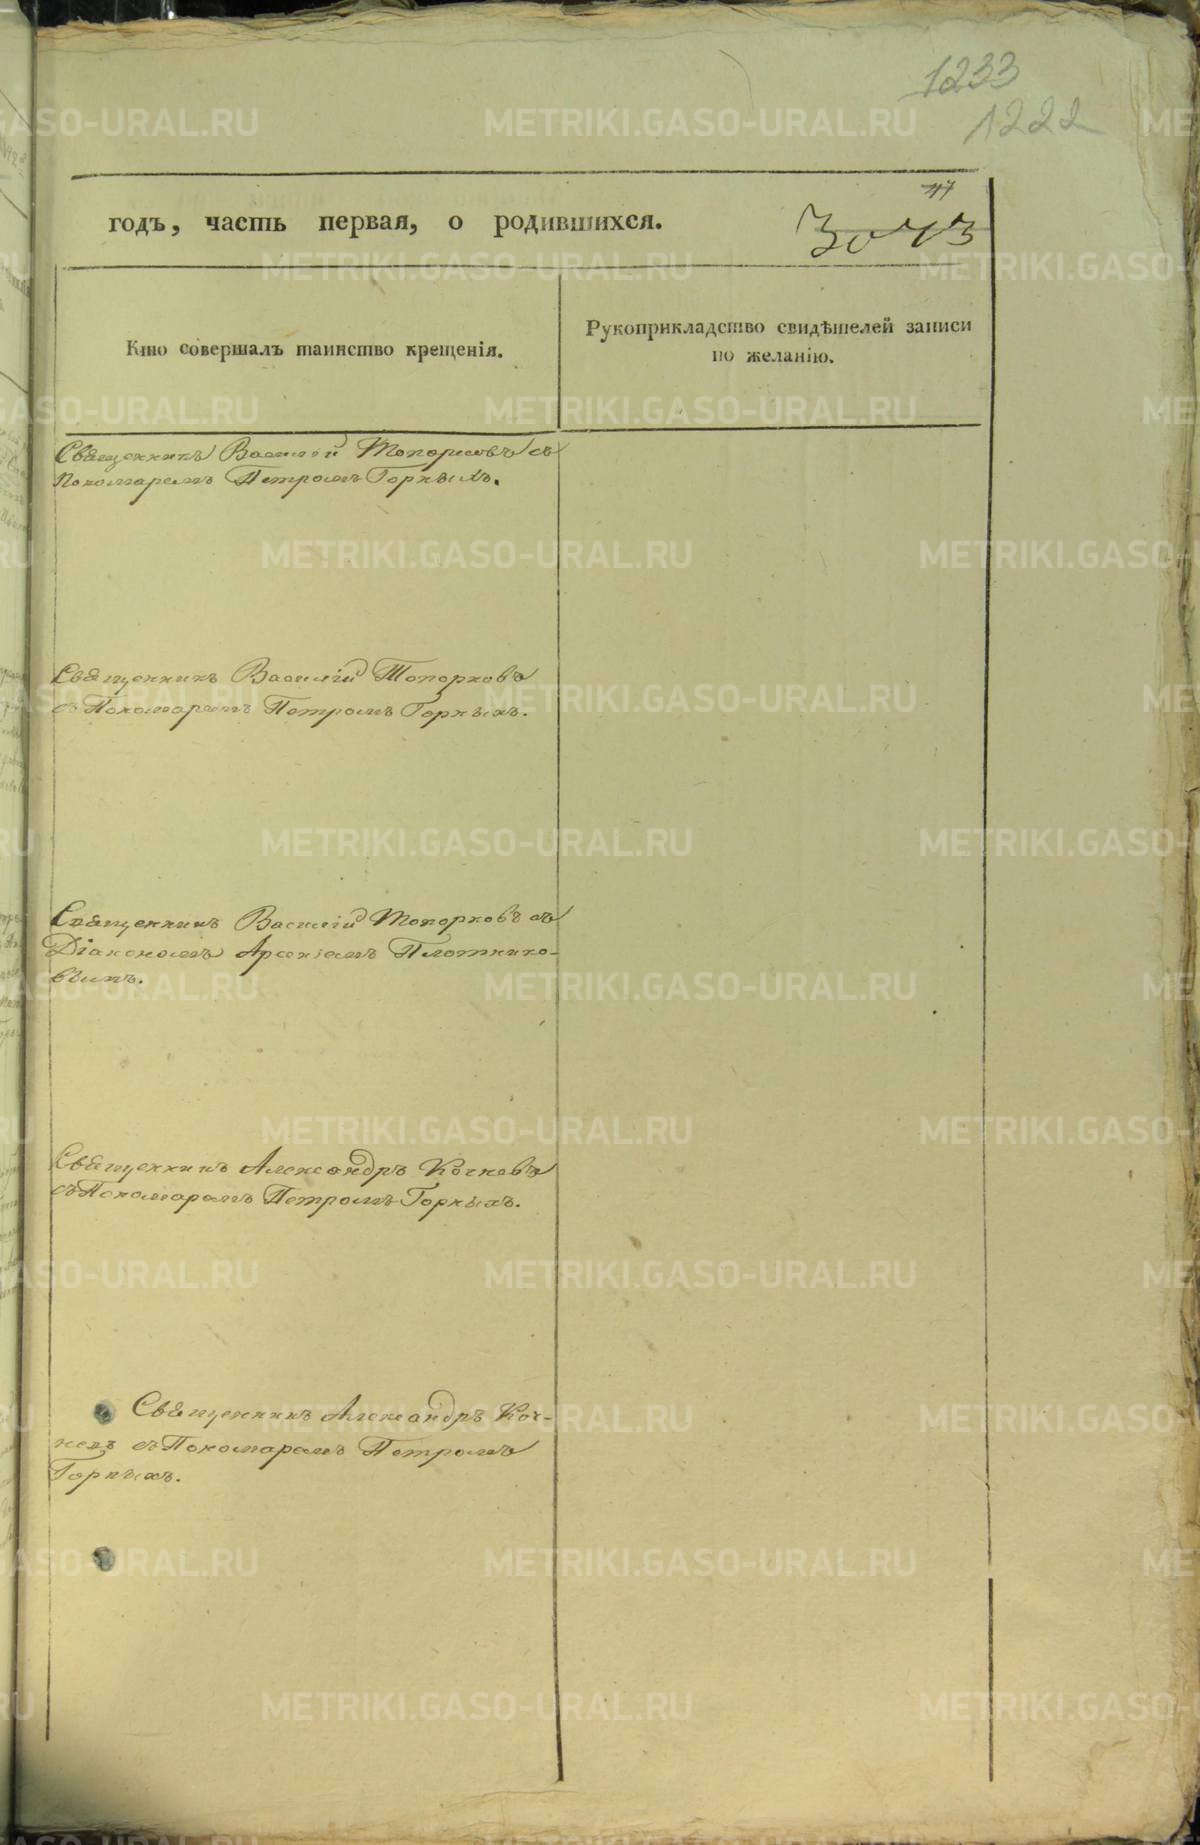 1233
1222
47
годъ, часть первая, о родившихся.
3043
Кто совершалъ таинство крещенія.
Рукоприкладство свидѣтелей записи
по желанію.
Священникъ Василій Топорковъ съ
Пономаремъ Петромъ Горныхъ.
Священникъ Василій Топорковъ
съ Пономаремъ Петромъ Горныхъ.
Священникъ Василій Топорковъ съ
Діакономъ Арсеніемъ Плотнико-
вымъ.
Священникъ Александръ Кочневъ
съ Пономаремъ Петромъ Горныхъ.
Священникъ Александръ Коч-
невъ съ Пономаремъ Петромъ
Горныхъ.
METRIKI.GASO-URAL.RU